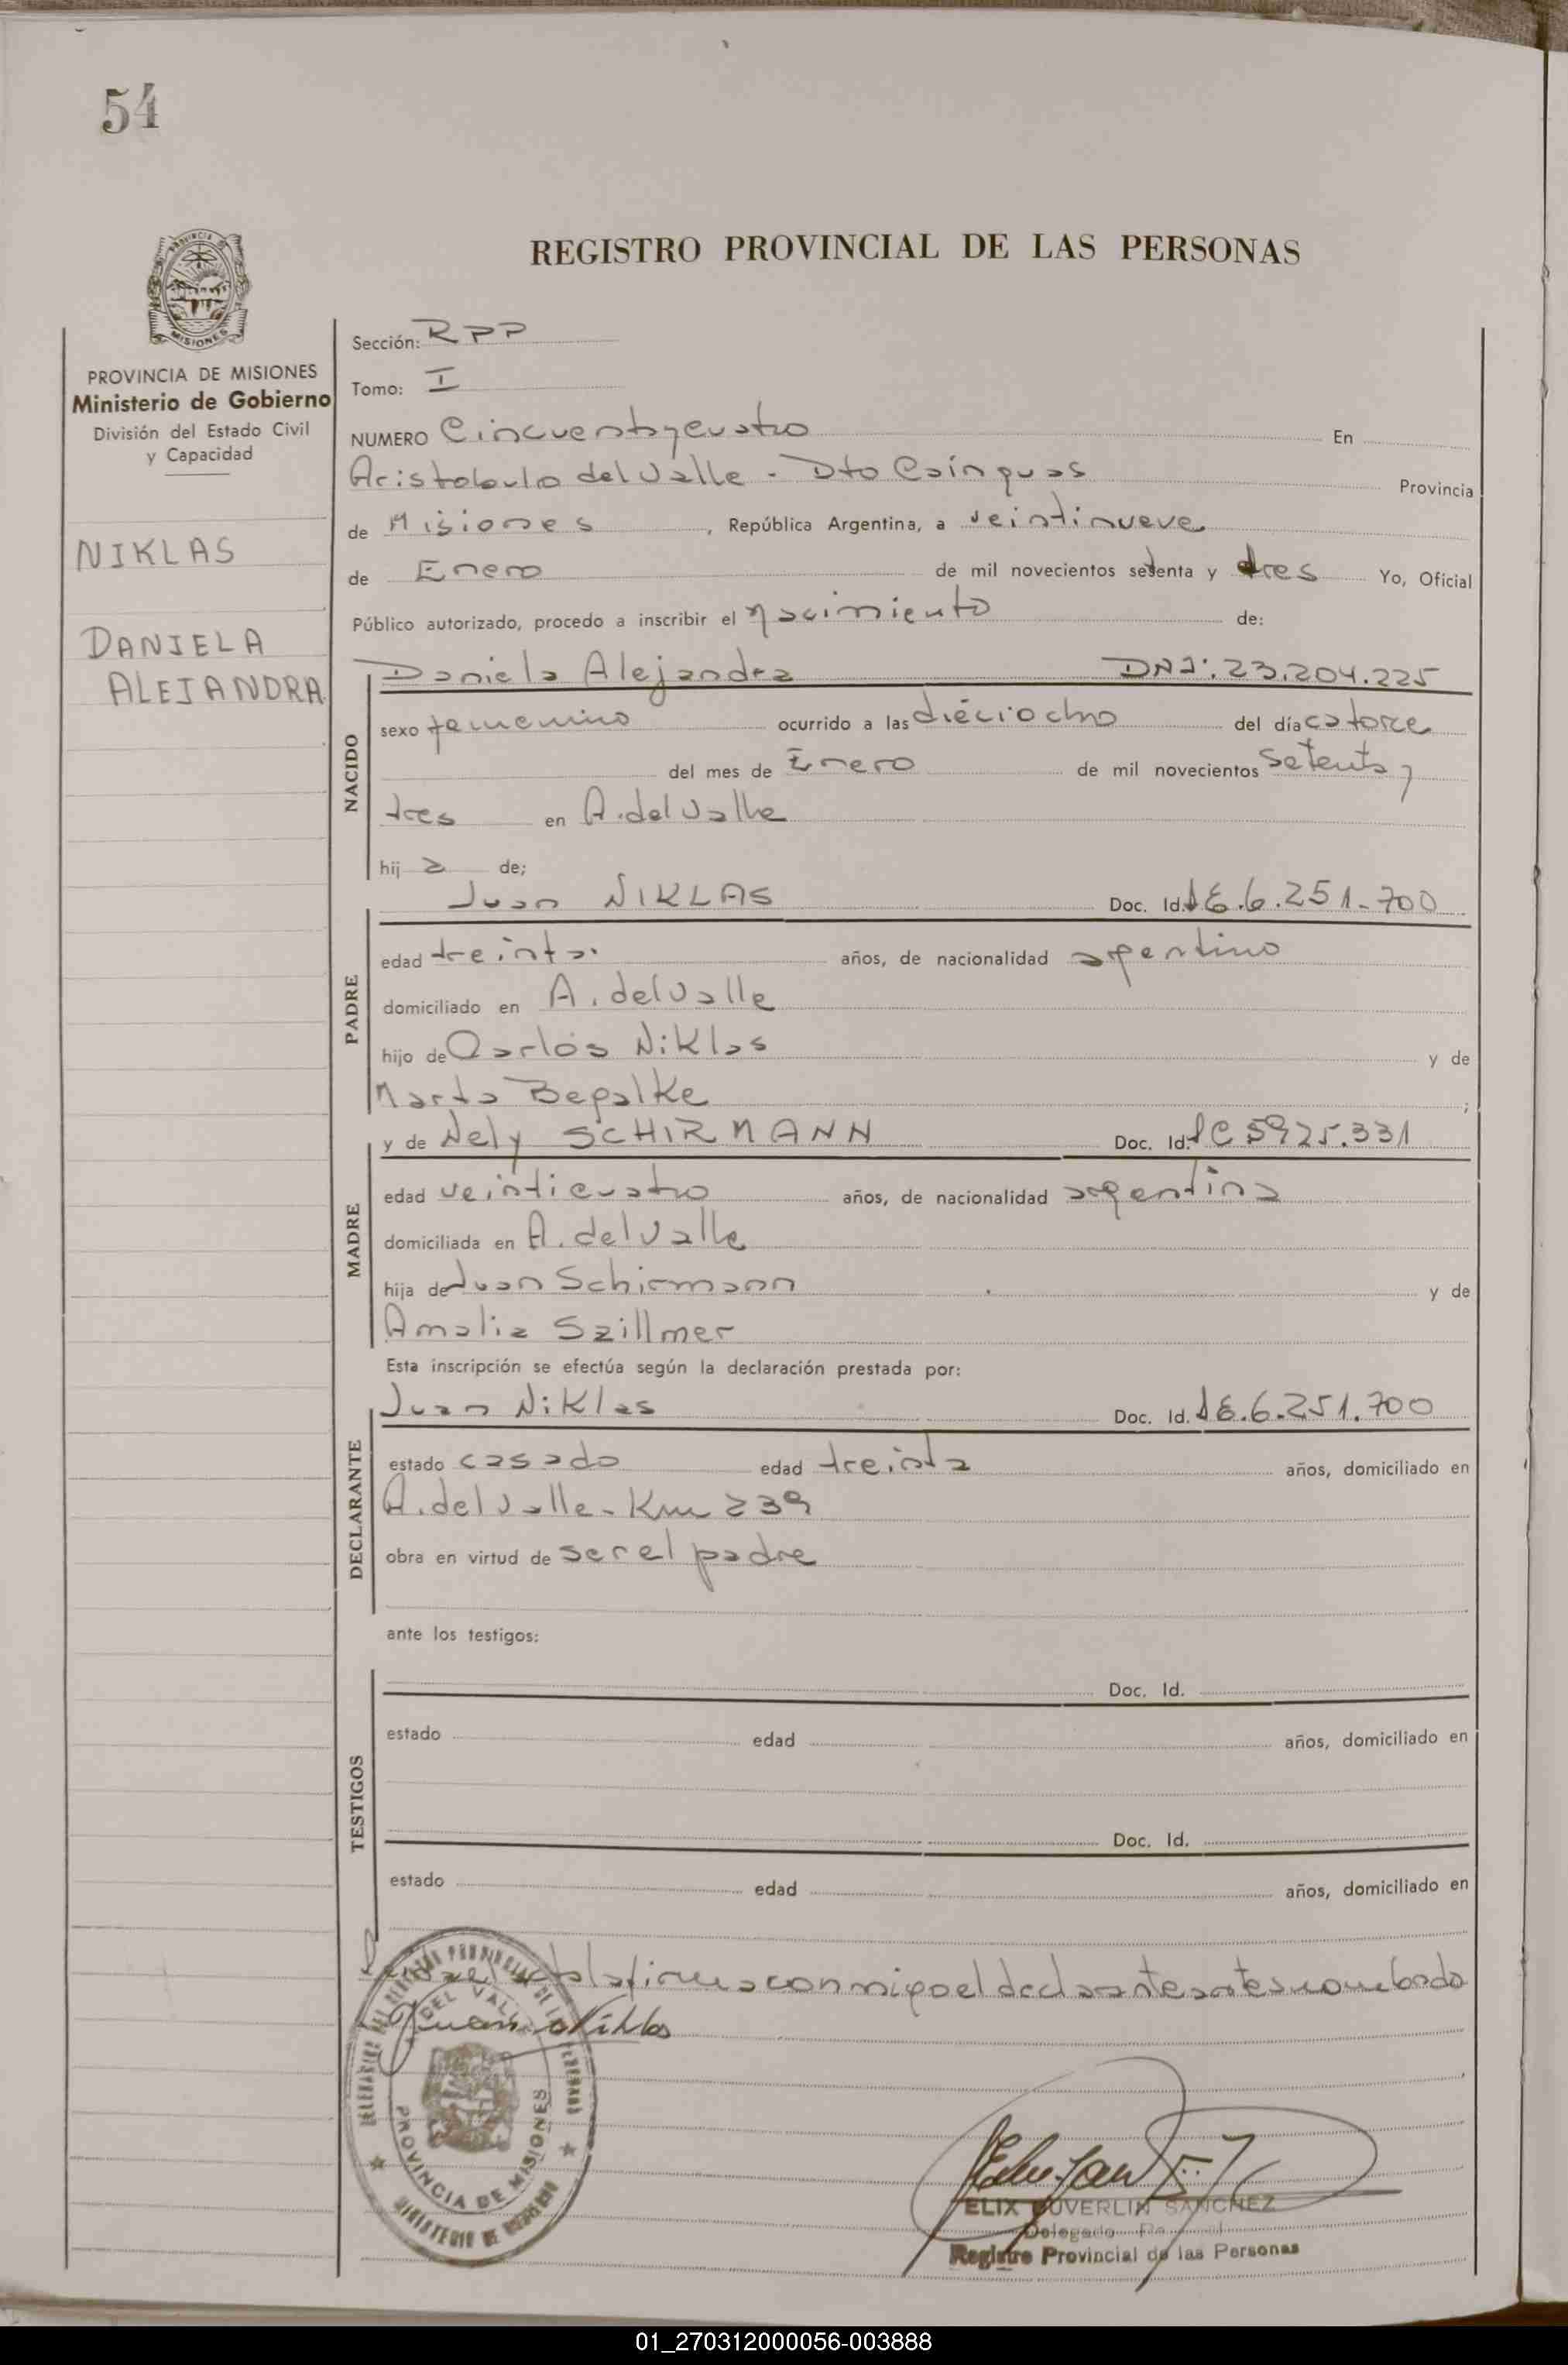 54
REGISTRO PROVINCIAL DE LAS PERSONAS
PROVINCIA DE MISIONES
MISIONES
PROVINCIA DE MISIONES
Ministerio de Gobierno
División del Estado Civil
y Capacidad
NIKLAS
DANIELA
ALEJANDRA
Sección: RPP
Tomo: I
NUMERO Cincuentaycuatro En
Aristobulo del Valle - Dto Cainguas Provincia
de Misiones, República Argentina, a veintinueve
de Enero de mil novecientos setenta y tres Yo, Oficial
Público autorizado, procedo a inscribir el nacimiento de:
Daniela Alejandra DNI: 23.204.225
NACIDO
sexo femenino ocurrido a las dieciocho del día catorce
del mes de Enero de mil novecientos setenta y
tres en A. del Valle
hij a de;
Juan NIKLAS Doc. Id. 6.251.700
PADRE
edad treinta años, de nacionalidad argentino
domiciliado en A. del Valle
hijo de Carlos Niklas y de
Marta Begalke ;
y de Nely SCHIRMANN Doc. Id. LC 5925.331
MADRE
edad veinticuatro años, de nacionalidad argentina
domiciliada en A. del Valle
hija de Juan Schirmann y de
Amalia Szillmer
Esta inscripción se efectúa según la declaración prestada por:
Juan Niklas Doc. Id. 6.251.700
DECLARANTE
estado casado edad treinta años, domiciliado en
A. del Valle - Km 239
obra en virtud de ser el padre
ante los testigos:
Doc. Id.
TESTIGOS
estado edad años, domiciliado en
Doc. Id.
estado edad años, domiciliado en
el acta la firma conmigo el declarante antes nombrado
Juan Niklas
A. DEL VALLE
PROVINCIA DE MISIONES
MINISTERIO DE GOBIERNO
ELIX DUVERLIN SANCHEZ
Delegado
Registro Provincial de las Personas
01_270312000056-003888